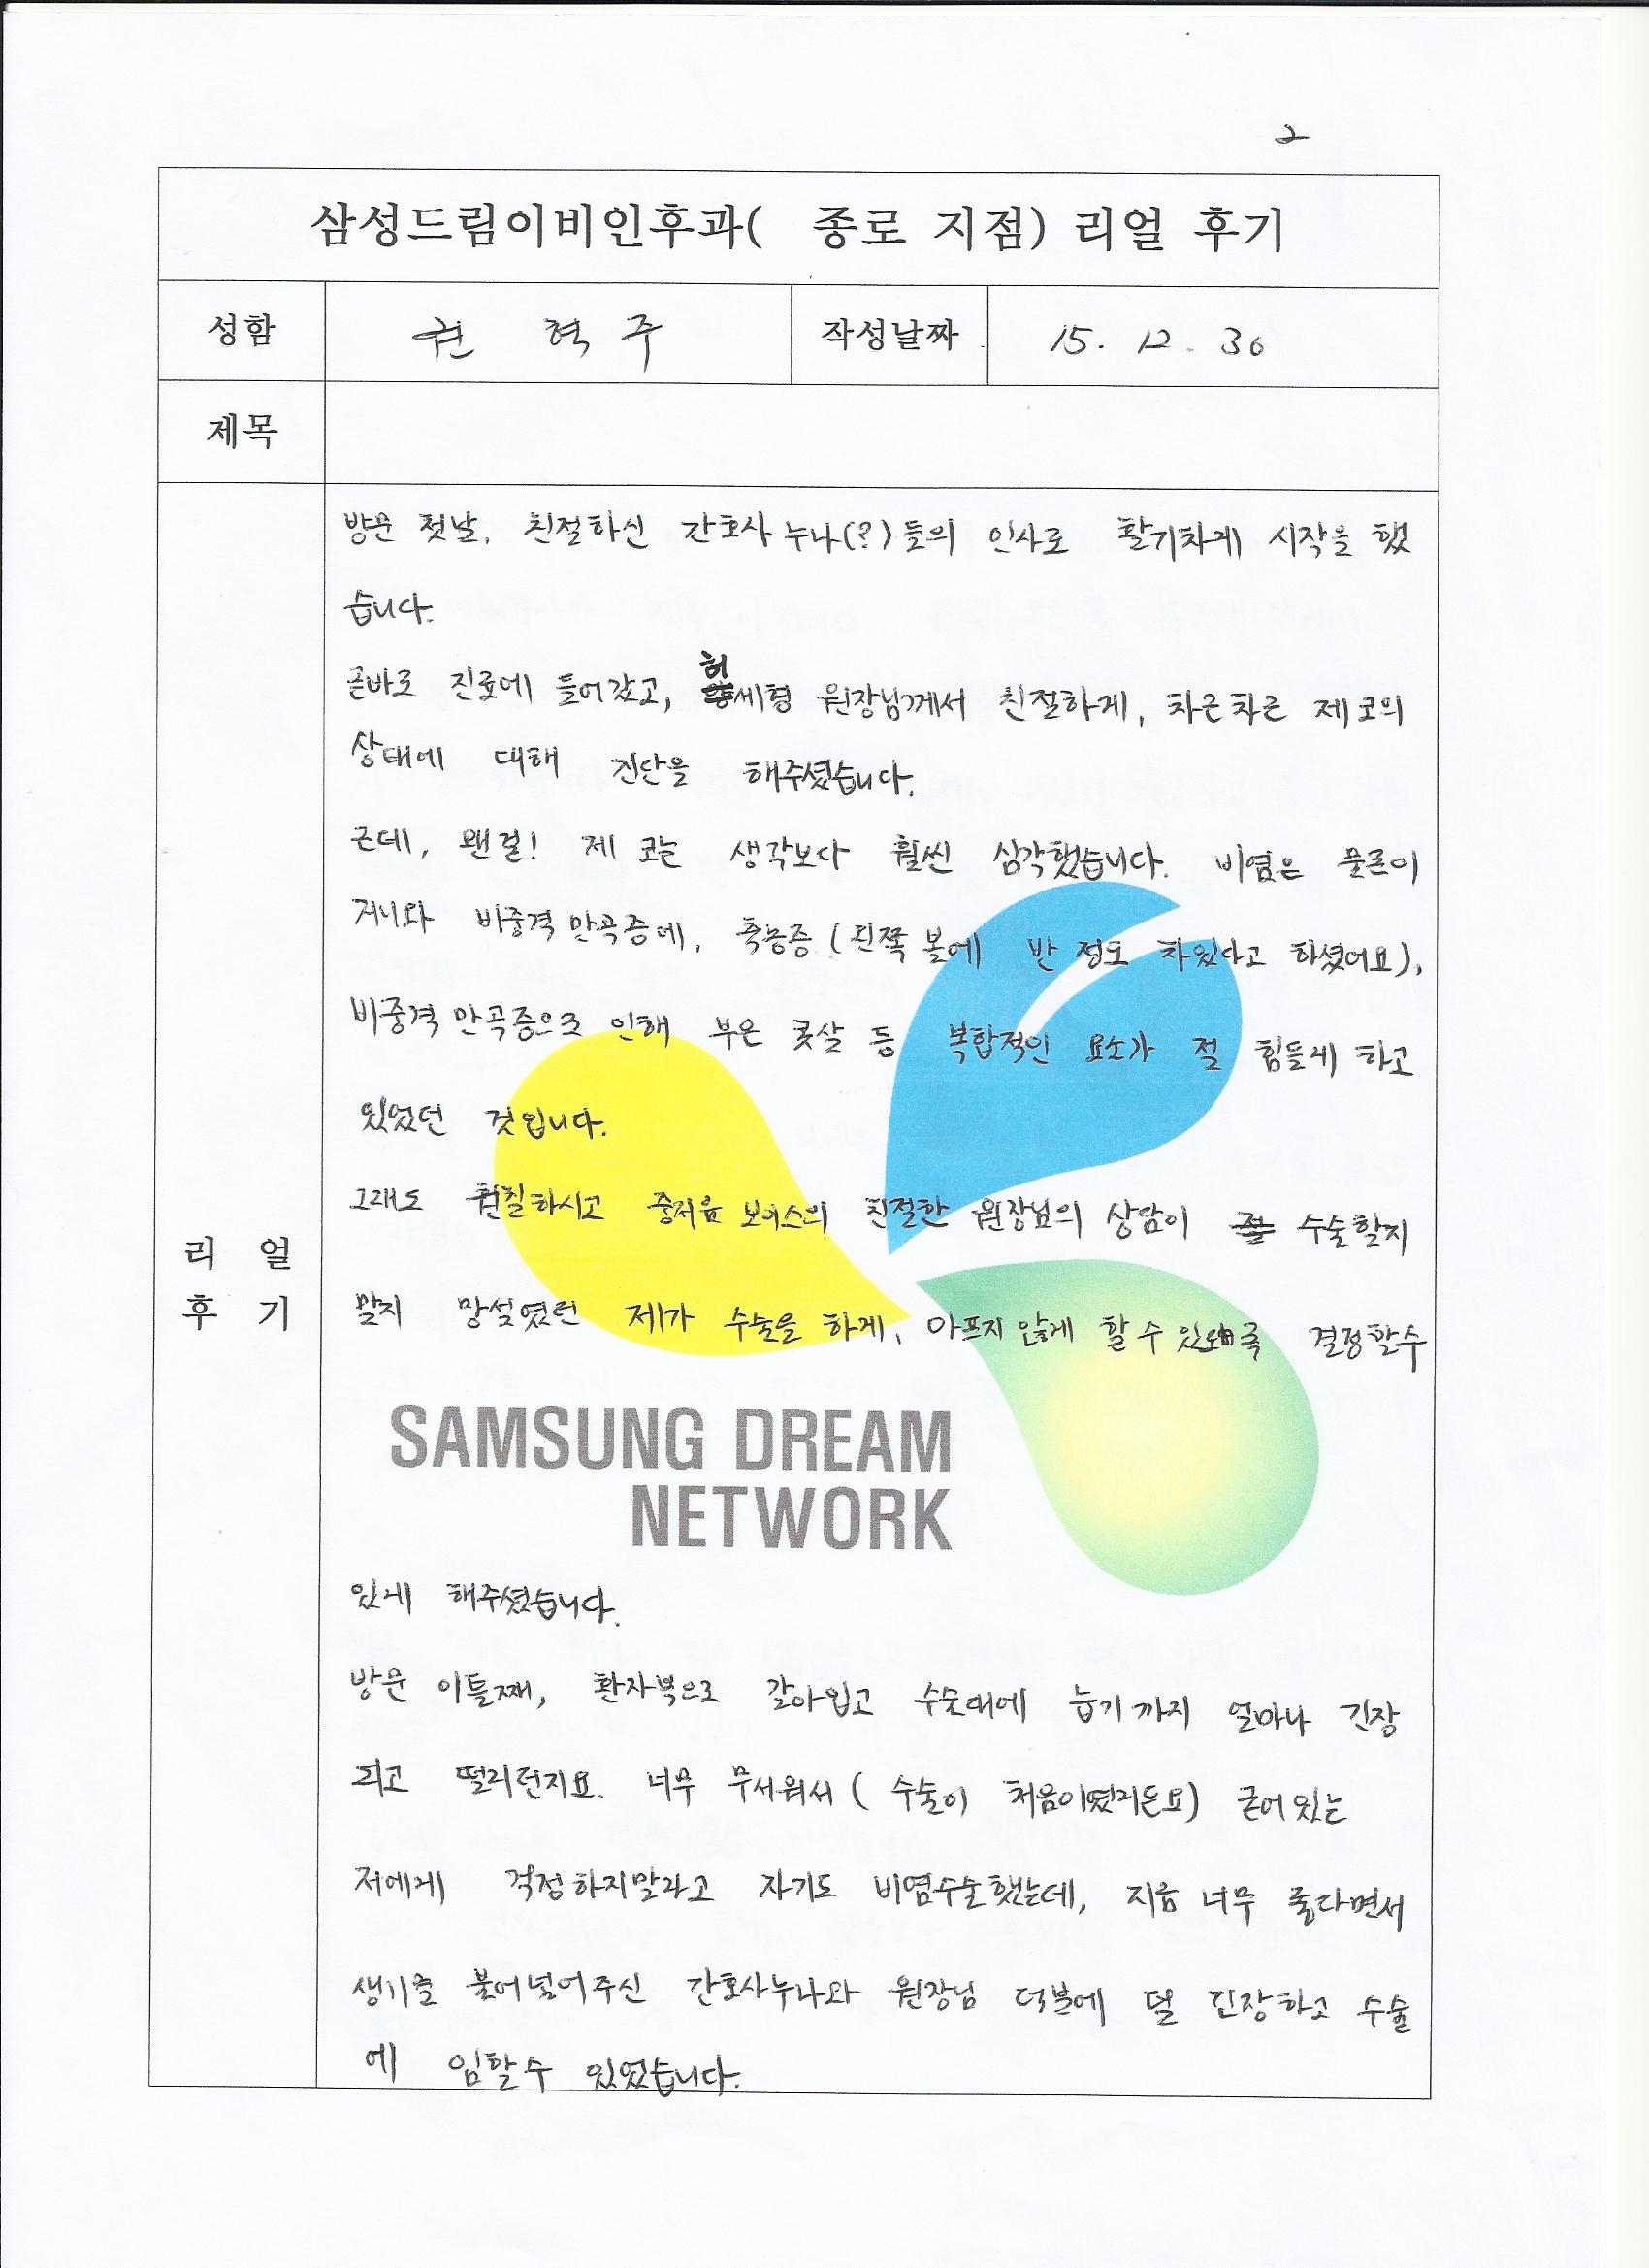 2
삼성드림이비인후과( 종로 지점) 리얼 후기
성함 권 혁 주 작성날짜 15. 12. 30
제목
방문 첫날, 친절하신 간호사 누나(?)들의 인사로 활기차게 시작을 했
습니다.
곧바로 진료에 들어갔고, 허세형 원장님께서 친절하게, 차근차근 제 코의
상태에 대해 진단을 해주셨습니다.
근데, 왠걸! 제 코는 생각보다 훨씬 심각했습니다. 비염은 물론이
거니와 비중격 만곡증에, 축농증 (왼쪽 볼에 반 정도 차있다고 하셨어요),
비중격 만곡증으로 인해 부은 콧살 등 복합적인 요소가 절 힘들게 하고
있었던 것입니다.
그래도 훤칠하시고 중저음 보이스의 친절한 원장님의 상담이 수술할지
말지 망설였던 제가 수술을 하게, 아프지 않게 할 수 결정할수
리 얼
후 기
SAMSUNG DREAM
NETWORK
있게 해주셨습니다.
방문 이틀째, 환자복으로 갈아입고 수술대에 눕기까지 얼마나 긴장
되고 떨리던지요. 너무 무서워서 ( 수술이 처음이였거든요) 굳어있는
저에게 걱정하지말라고 자기도 비염수술했는데, 지금 너무 좋다면서
생기를 불어넣어주신 간호사누나와 원장님 덕분에 덜 긴장하고 수술
에 임할수 있었습니다.